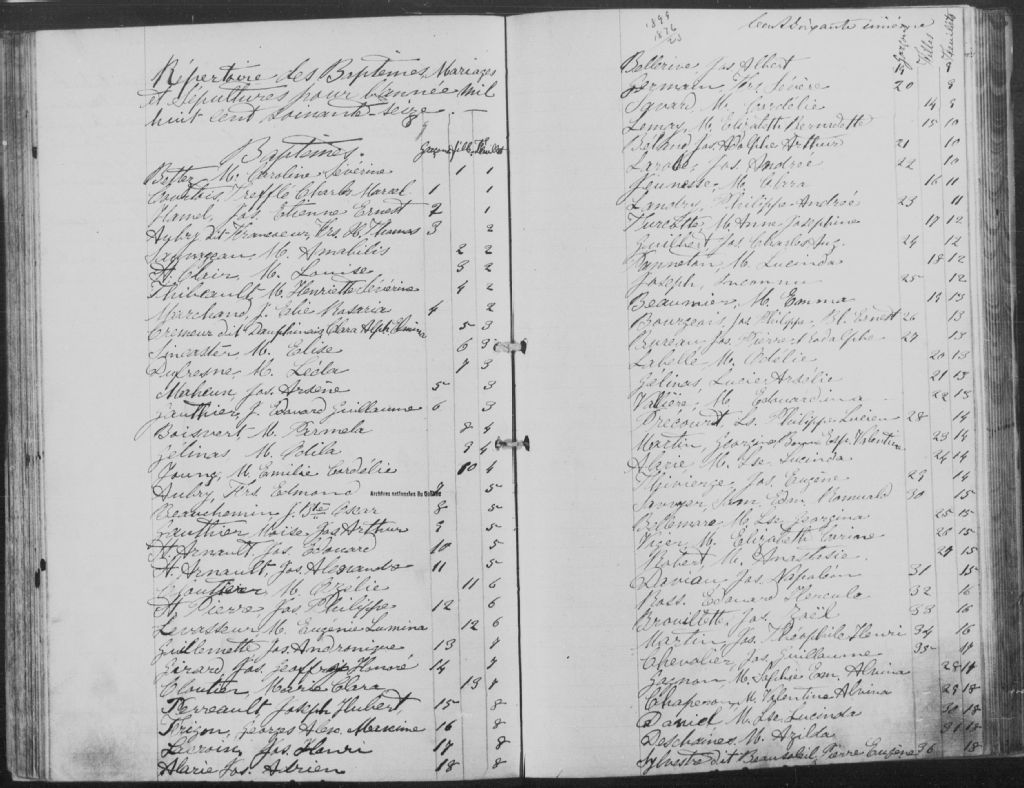 Répertoire des Baptêmes, Mariages
et Sépultures pour l'année mil
huit cent soixante-seize.
Baptêmes. Garçons filles feuillets
Bettez, M. Caroline Séverine 1 1
Courtois, Treffle Charles Marcel 1 1
Hamel, Jos. Etienne Ernest 2 1
Aubry dit Francoeur, Frs. X. Thomas 3 2
M. Amabilis 2 2
St. Clair, M. Louise 3 2
Thibeault M. Henriette Séverine 4 2
Marchand, J. Elie Rosario 4 2
Cremeur dit Dauphinais, Clara Alph. Elmina 5 3
Lincaster M. Elise 6 3
Dufresne, M. Léda 7 3
Maheux, Jos. Arsène 5 3
Gauthier, J. Edouard Guillaume 6 3
Boisvert M. Parmela 8 4
Gélinas M. Odila 9 4
Young, M. Emilie Cordélie 10 4
Aubry, Frs. Edmond 5
Archives nationales du Québec
Beauchemin J. Bte Oscar 8 5
Gauthier, Moise Jos Arthur 9 5
St. Arnault, Jos. Edouard 10 5
St. Arnault, Jos. Alexandre 11 5
Cloutier M. Ozélie 11 6
St. Pierre Jos Philippe 12 6
Levasseur M. Eugénie Lumina 12 6
Guillemette, Jos. Andronique 13 7
Girard, Jos. Geoffroy Honoré 14 7
Cloutier, Marie Clara 13 7
Perreault Joseph Hubert 15 8
Frigon, Georges Alex. Maxime 16 8
Lacroix, Jos. Henri 17 8
Alarie Jos. Adrien 18 8
1899
1876
23
Cent soixante unième
Garçons Filles Feuillets
Bellerive Jos Albert 19 9
Germain, Frs. Sévère 20 9
Sicard M. Cordélie 14 9
Lemay, M. Elizabeth Bernadette 15 10
Béland Jos. Adolphe Arthur 21 10
Jos. Andrée 22 10
Jeunesse M. Clara 16 11
Landry, Philippe Andrée 23 11
Turcotte, M. Anne Josephine 17 12
Guilbert Jos Charles Aug. 24 12
Panneton, M. Lucinda 18 12
Joseph, Inconnu 25 12
Beaumier, M. Emma 19 13
Bourgeois, Jos Philippe, Bl. Benoit 26 13
Bureau Jos Pierre Rodolphe 27 13
Labelle, M. Odélie 20 13
Gélinas, Lucie Ardélie 21 13
Vallière, M. Edouardina 22 13
Precourt, Ls. Philippe Lucien 28 14
Martin, Georgine Valentine 23 14
Alarie M. Lse. Lucinda 24 14
Thivierge, Jos. Eugène 29 14
Sawyer, Sam. Edm. Romuald 30 15
Bellemare, M. Lse. Georgina 25 15
Viger, M. Elizabeth Corine 26 15
Robert M. Anastasie. 27 15
Daviau, Jos. Napoléon 31 15
Ross, Edouard Herculo 32 16
Brouillette, Jos. Joël 33 16
Martin, Jos. Théophile Henri 34 16
Chevalier, Jos. Guillaume 35 17
Gagnon, M. Sophie Em. Alvina 28 17
Chaperon M. Valentine Alvina 29 18
David M. Lse. Lucinda 30 18
Deschaines M. Azilda 31 18
Sylvestre dit Beausoleil, Pierre Eugène 36 18